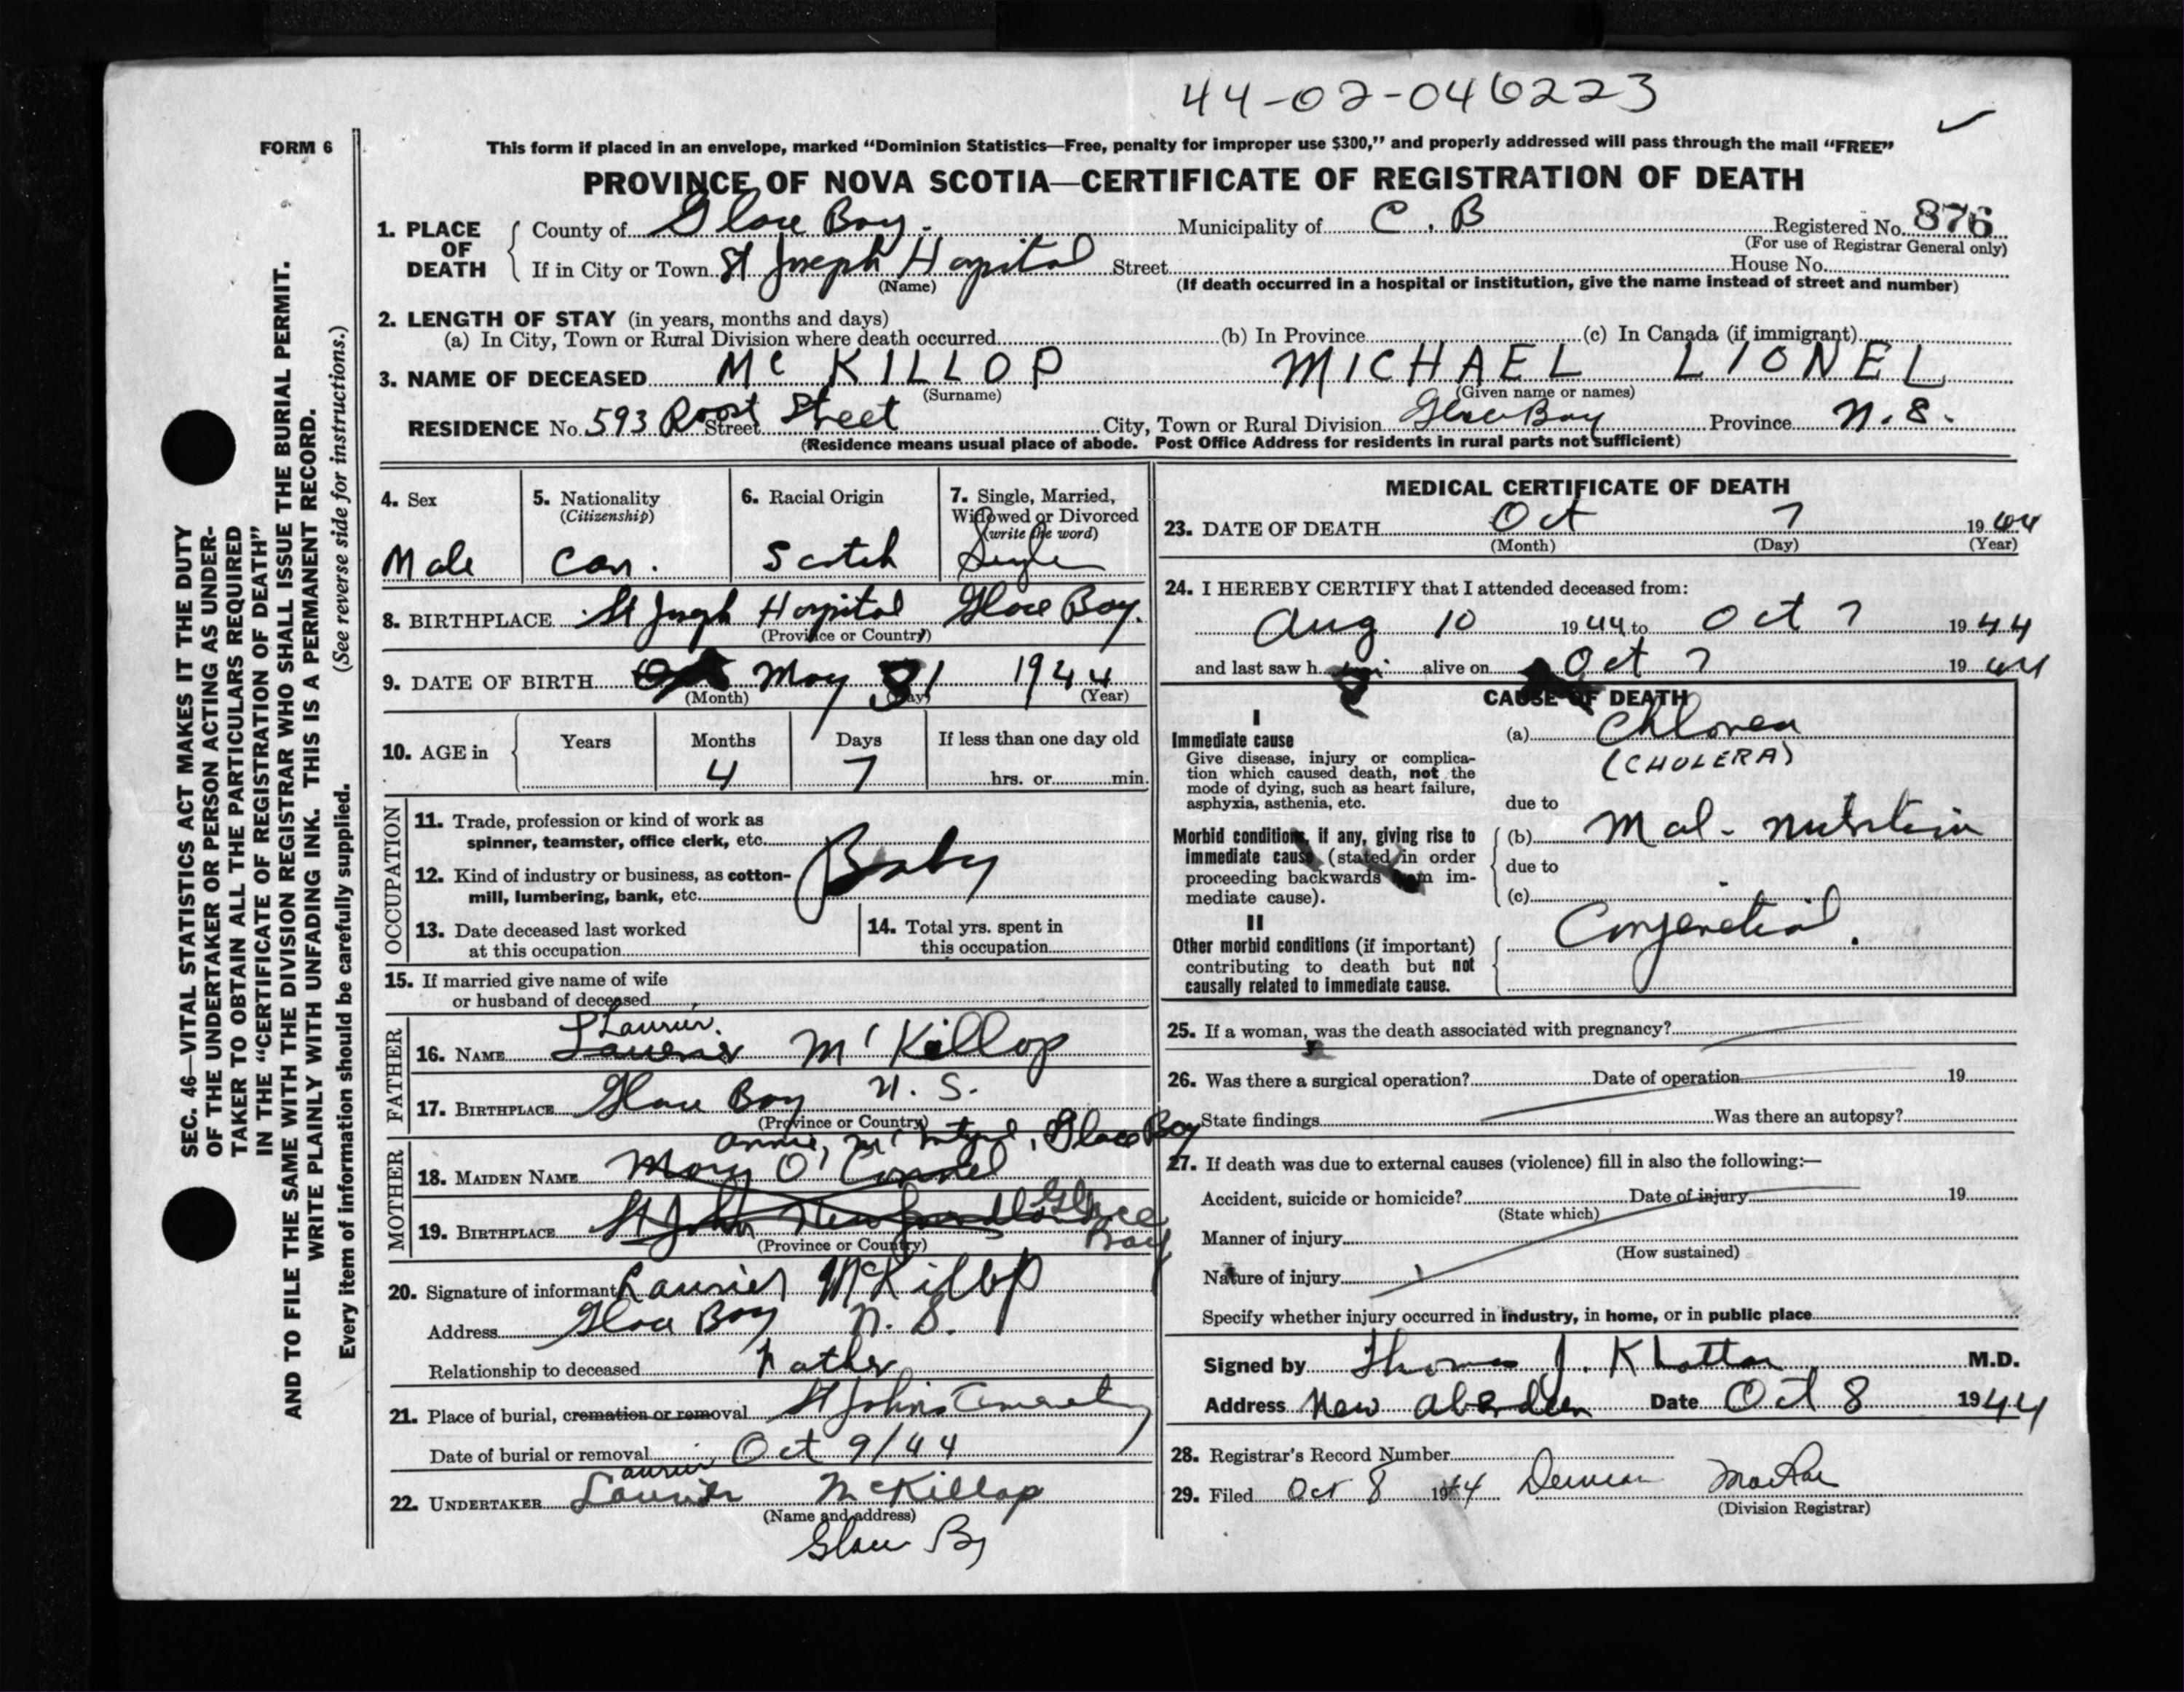 44-02-046223
FORM 6
This form if placed in an envelope, marked “Dominion Statistics—Free, penalty for improper use $300,” and properly addressed will pass through the mail “FREE”
PROVINCE OF NOVA SCOTIA—CERTIFICATE OF REGISTRATION OF DEATH
1. PLACE OF DEATH
County of Glace Bay. Municipality of C. B Registered No. 876
(For use of Registrar General only)
If in City or Town St Joseph Hospital Street House No.
(Name) (If death occurred in a hospital or institution, give the name instead of street and number)
2. LENGTH OF STAY (in years, months and days)
(a) In City, Town or Rural Division where death occurred (b) In Province (c) In Canada (if immigrant)
3. NAME OF DECEASED Mc KILLOP MICHAEL LIONEL
(Surname) (Given name or names)
RESIDENCE No. 593 Roost Street Street City, Town or Rural Division Glace Bay Province N.S.
(Residence means usual place of abode. Post Office Address for residents in rural parts not sufficient)
4. Sex
Male
5. Nationality
(Citizenship)
Can.
6. Racial Origin
Scotch
7. Single, Married,
Widowed or Divorced
(write the word)
Single
8. BIRTHPLACE St Joseph Hospital Glace Bay.
(Province or Country)
9. DATE OF BIRTH May 31 1944
(Month) (Day) (Year)
10. AGE in
Years Months Days If less than one day old
4 7 hrs. or min.
OCCUPATION
11. Trade, profession or kind of work as
spinner, teamster, office clerk, etc.
Baby
12. Kind of industry or business, as cotton-
mill, lumbering, bank, etc.
13. Date deceased last worked
at this occupation
14. Total yrs. spent in
this occupation
15. If married give name of wife
or husband of deceased
FATHER
Laurier.
16. NAME Laurier Mc Killop
17. BIRTHPLACE Glace Bay N. S.
(Province or Country)
MOTHER
Annie, Mc Intyre, Glace Bay
18. MAIDEN NAME Mary O'Connel
19. BIRTHPLACE St John Newfoundland Glace Bay
(Province or Country)
20. Signature of informant Laurier McKillop
Address Glace Bay N. S.
Relationship to deceased Father
21. Place of burial, cremation or removal St Johns Cemetery
Date of burial or removal Oct 9/44
Laurier
22. UNDERTAKER Laurier McKillop
(Name and address)
Glace Bay
MEDICAL CERTIFICATE OF DEATH
23. DATE OF DEATH Oct 7 1944
(Month) (Day) (Year)
24. I HEREBY CERTIFY that I attended deceased from:
Aug 10 1944 to Oct 7 1944
and last saw h alive on Oct 7 1944
CAUSE OF DEATH
I
Immediate cause
Give disease, injury or complica-
tion which caused death, not the
mode of dying, such as heart failure,
asphyxia, asthenia, etc.
(a) Chlorea
(CHOLERA)
due to
Morbid conditions, if any, giving rise to
immediate cause (stated in order
proceeding backwards from im-
mediate cause).
(b) Mal-nutrition
due to
(c)
II
Other morbid conditions (if important)
contributing to death but not
causally related to immediate cause.
Congenetial.
25. If a woman, was the death associated with pregnancy?
26. Was there a surgical operation? Date of operation 19
State findings Was there an autopsy?
27. If death was due to external causes (violence) fill in also the following:—
Accident, suicide or homicide? Date of injury 19
(State which)
Manner of injury
(How sustained)
Nature of injury
Specify whether injury occurred in industry, in home, or in public place
Signed by Thomas J. Khattar M.D.
Address New Aberdeen Date Oct 8 1944
28. Registrar's Record Number
29. Filed Oct 8 1944 Duncan MacRae
(Division Registrar)
SEC. 46—VITAL STATISTICS ACT MAKES IT THE DUTY
OF THE UNDERTAKER OR PERSON ACTING AS UNDER-
TAKER TO OBTAIN ALL THE PARTICULARS REQUIRED
IN THE “CERTIFICATE OF REGISTRATION OF DEATH”
AND TO FILE THE SAME WITH THE DIVISION REGISTRAR WHO SHALL ISSUE THE BURIAL PERMIT.
WRITE PLAINLY WITH UNFADING INK. THIS IS A PERMANENT RECORD.
Every item of information should be carefully supplied. (See reverse side for instructions.)